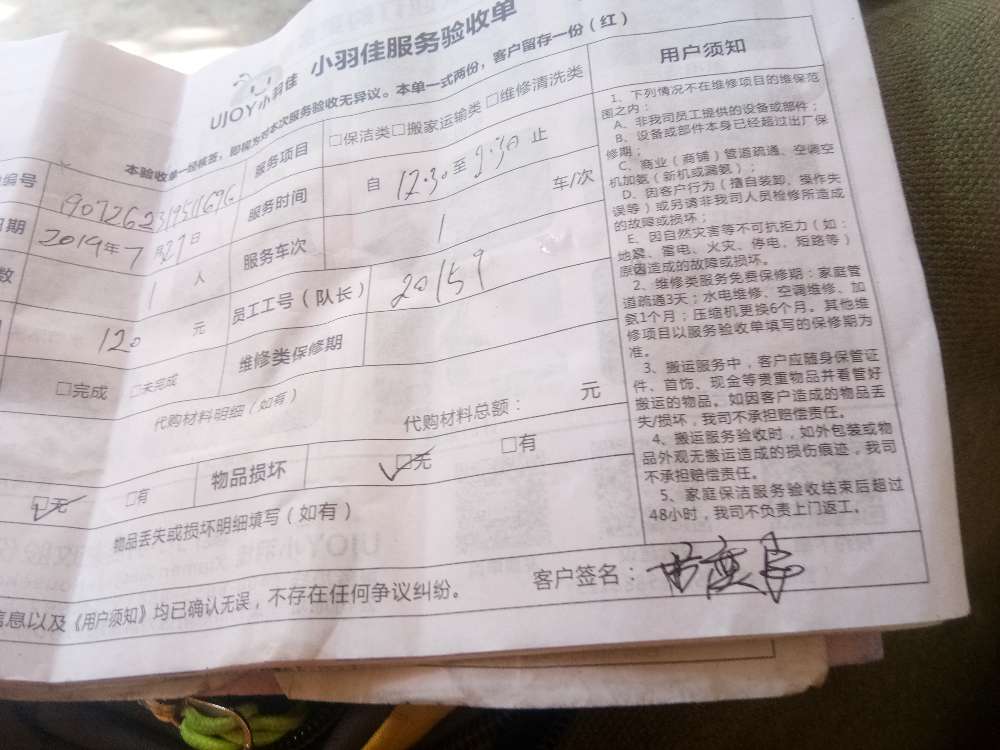 UJOY小羽佳 小羽佳服务验收单
本验收单一经核签，即视为对本次服务验收无异议。本单一式两份，客户留存一份（红）
编号
服务项目 □保洁类□搬家运输类 □维修清洗类
日期 2019年7月27日
服务时间 自 12:30 至 2:30 止
数 1 人
服务车次 1 车/次
120 元
员工工号（队长） 20159
□完成 □未完成
维修类保修期
代购材料明细（如有） 代购材料总额： 元
□无 □有
物品损坏 □无 □有
物品丢失或损坏明细填写（如有）
信息以及《用户须知》均已确认无误，不存在任何争议纠纷。
客户签名：
用户须知
1、下列情况不在维修项目的维保范
围之内：
A、非我司员工提供的设备或部件；
B、设备或部件本身已经超过出厂保
修期；
C、商业（商铺）管道疏通、空调空
机加氨（新机或漏氨）；
D、因客户行为（擅自装卸、操作失
误等）或另请非我司人员检修所造成
的故障或损坏；
E、因自然灾害等不可抗拒力（如：
地震、雷电、火灾、停电、短路等）
原因造成的故障或损坏。
2、维修类服务免费保修期：家庭管
道疏通3天；水电维修、空调维修、加
氨1个月；压缩机更换6个月。其他维
修项目以服务验收单填写的保修期为
准。
3、搬运服务中，客户应随身保管证
件、首饰、现金等贵重物品并看管好
搬运的物品。如因客户造成的物品丢
失/损坏，我司不承担赔偿责任。
4、搬运服务验收时，如外包装或物
品外观无搬运造成的损伤痕迹，我司
不承担赔偿责任。
5、家庭保洁服务验收结束后超过
48小时，我司不负责上门返工。